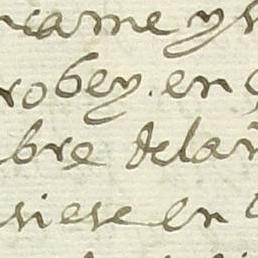 ncame y s
robey. en
bre dela
siese en